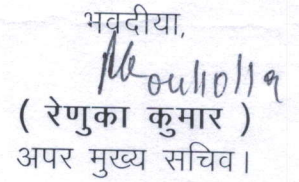 भवदीया,
( रेणुका कुमार )
अपर मुख्य सचिव।